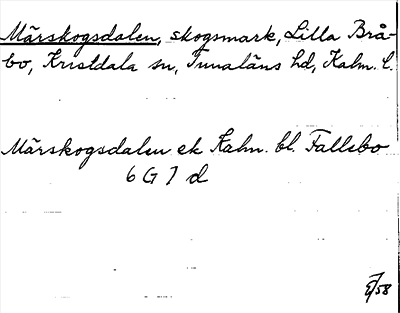 Märskogsdalen, skogsmark, Lilla Brå-
bo, Kristdala sn, Tunaläns hd, Kalm. l.
Märskogsdalen ek Kalm. bl. Fallsbo
6 G 7 d
/58